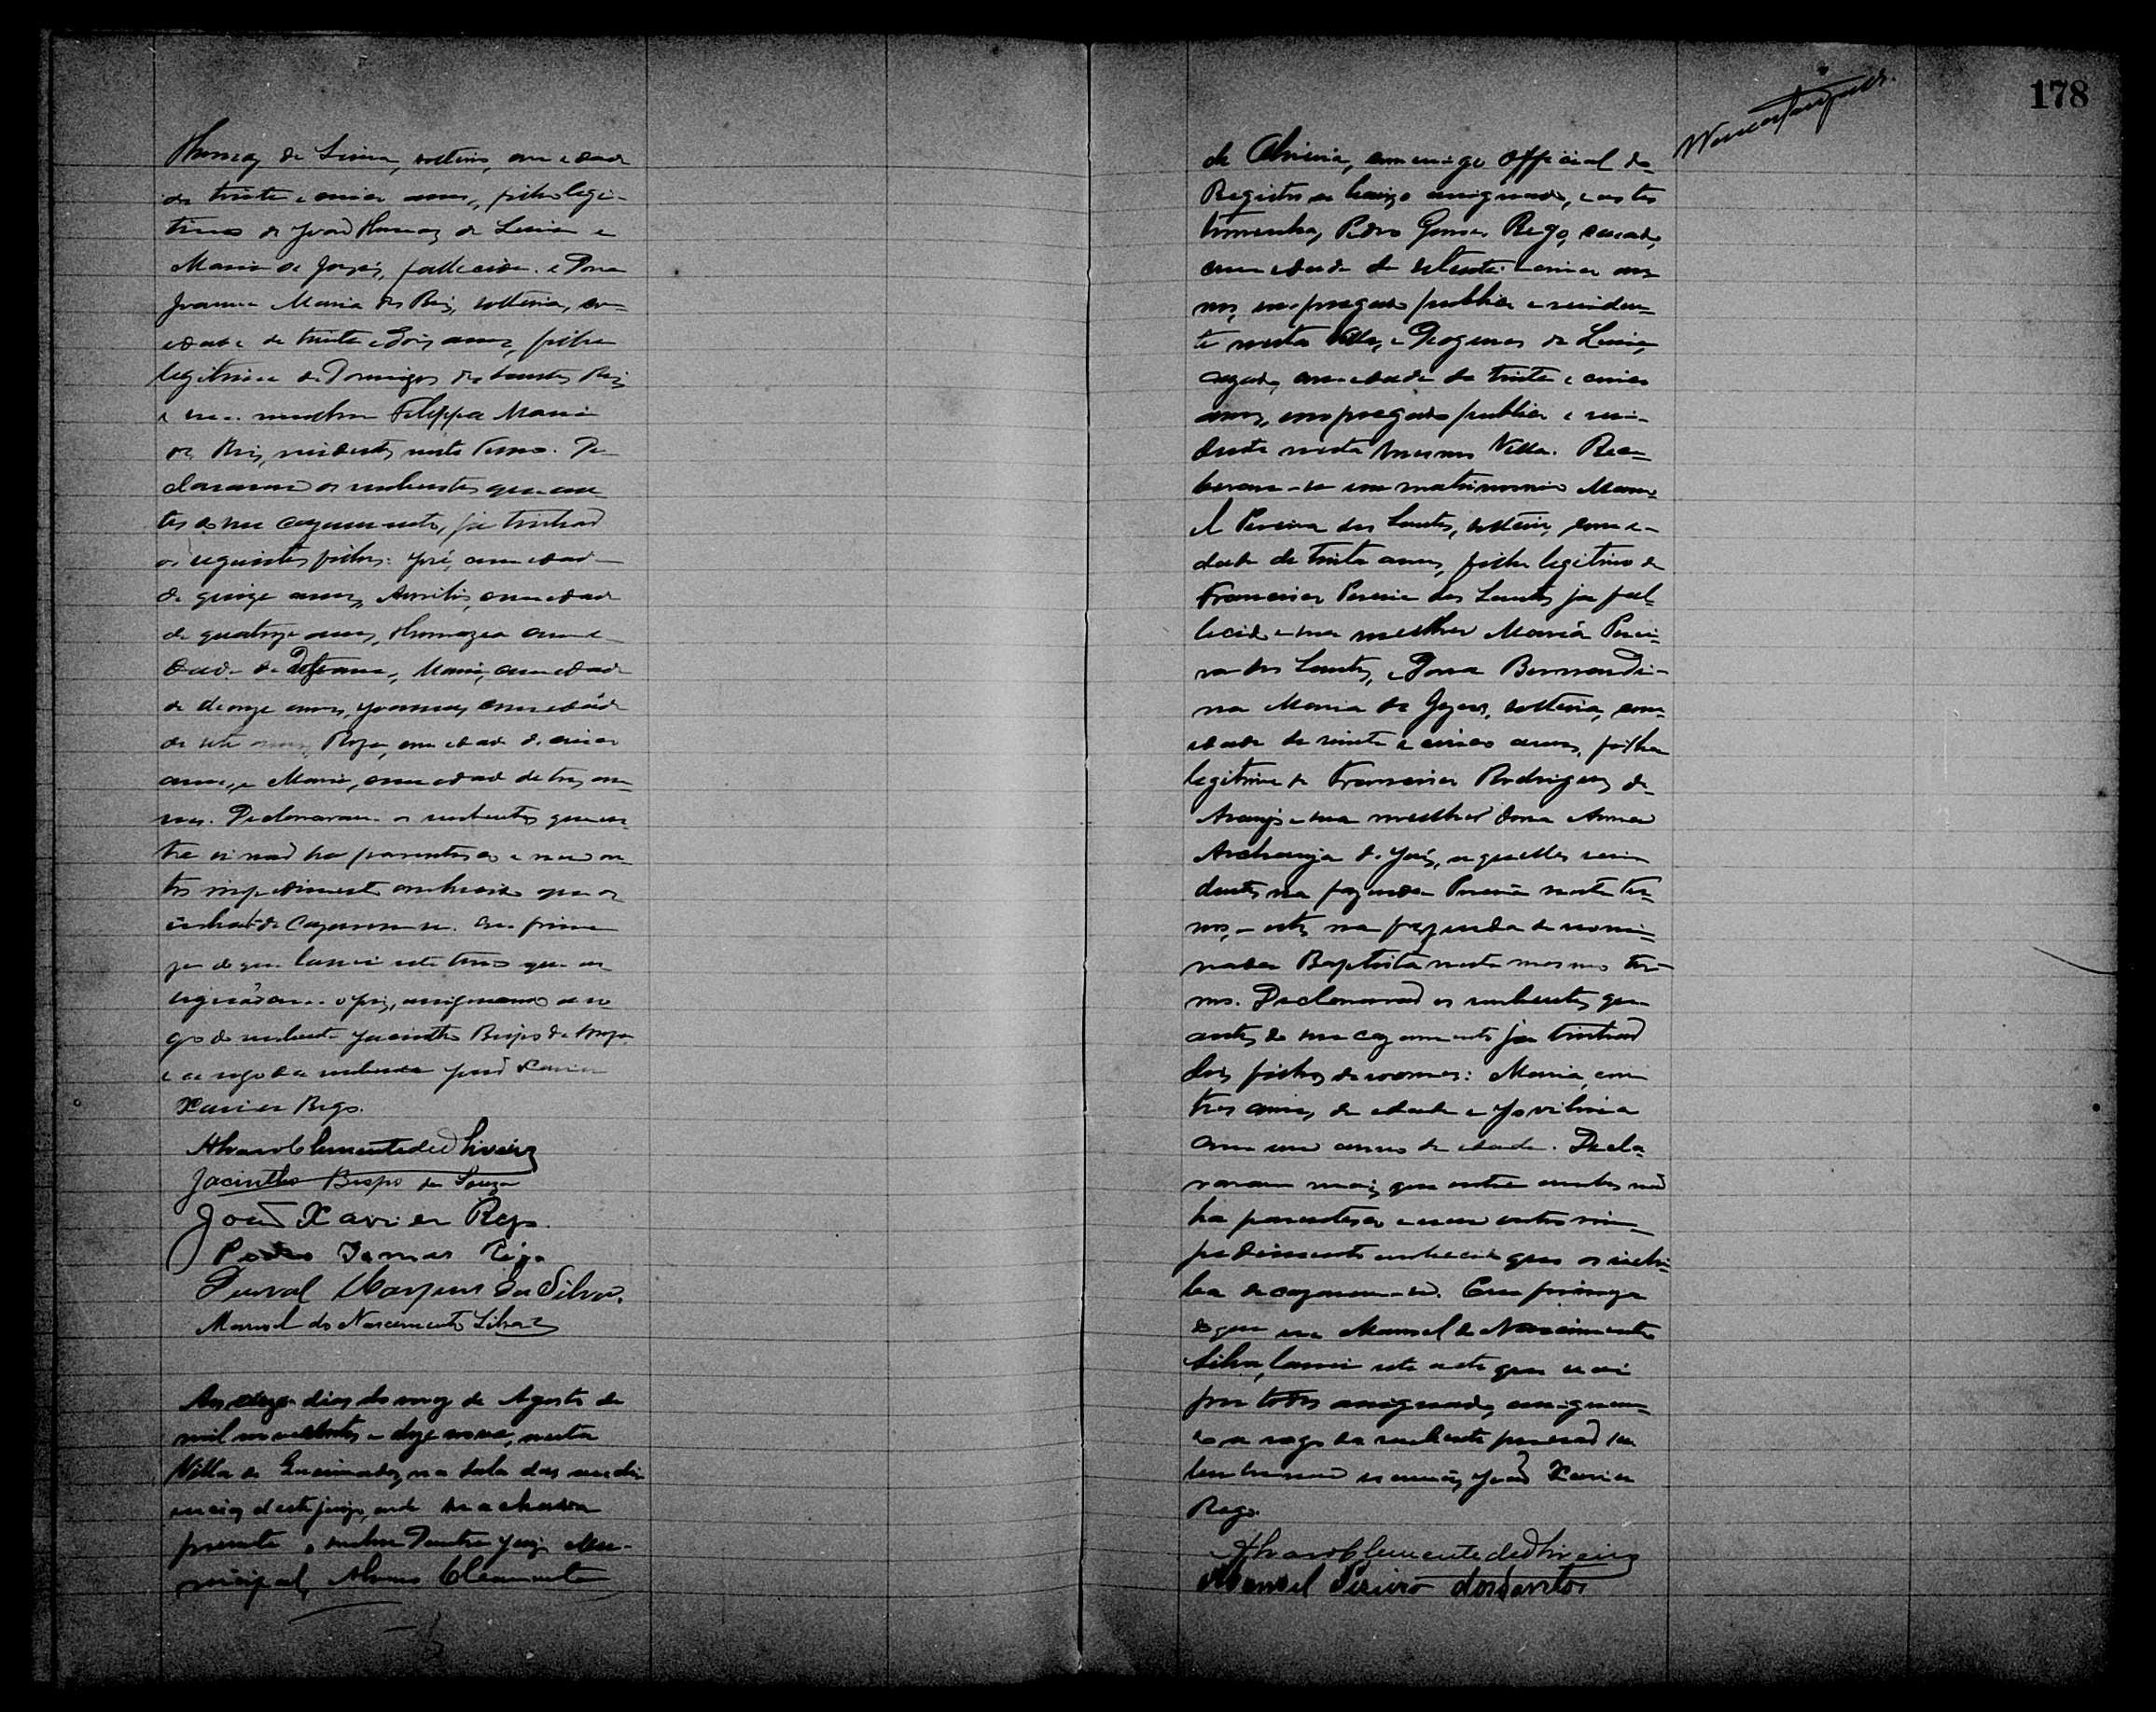 Thomaz de Lima, solteiro, com edade
de trinta e cinco annos, filho legi-
timo de João Thomaz de Lima e
Maria de Jezus, fallecida, e Dona
Joanna Maria dos Reis, solteira, com
edade de trinta e dois annos, filha
legitima de Domingos dos Santos Reis
e sua mulher Felippa Maria
dos Reis, residentes neste Termo. De-
clararam os nubentes que an-
tes do seu cazamento, ja tinhão
os seguintes filhos: José, com edade
de quinze annos, com edade
de quatorze annos, Thomazia com e-
dade de annos, Maria, com edade
de onze annos, Joanna, com edade
de sete annos, Roza, com edade de cinco
annos, e Maria, com edade de tres an-
nos. Declararam os nubentes que en-
tre si não ha parentesco e nem ou-
tro impedimento conhecido que os
inhiba de cazarem-se. Em firme-
za do que lavrei este termo que vai
assignado o juiz, assignando a ro-
go do nubente Jacintho Bispo de Souza
e a rogo da nubente João Xavier
Xavier Rego.
Alvaro Clemente de Oliveira
Jacintho Bispo de Souza
João Xavier Rego.
Pedro Gomes Rego
Durval Marques da Silva.
Manoel do Nascimento Silva
Aos dias do mez de Agosto de
mil novecentos e dezenove, nesta
Villa de Queimadas, na sala das audi-
encias deste juizo, onde se achava
presente o senhor Doutor Juiz Mu-
nicipal, Alvaro Clemente
178
de Oliveira, commigo Official do
Registro a baixo assignado, e as tes
timunhas, Pedro Gomes Rego, cazado,
com edade de setenta e cinco an-
nos, empregado publico e residen-
te nesta Villa, e Diogenes de Lima,
cazado, com edade de trinta e cinco
annos, empregado publico e resi-
dente nesta mesma Villa. Rece-
beram-se em matrimonio Mano-
el Pereira dos Santos, solteiro, com e-
dade de trinta annos, filho legitimo de
Francisco Pereira dos Santos ja fal-
lecido e sua mulher Maria Perei-
ra dos Santos, e Dona Bernardi-
na Maria de Jezus, solteira, com
edade de vinte e cinco annos, filha
legitima de Francisco Rodrigues de
Araujo e sua mulher dona Anna
Archanja de Jezus, aquelles resi-
dentes na fazenda neste ter-
mo, e estes na fazenda denomi-
nada Baptista neste mesmo ter-
mo. Declararão os nubentes que
antes do seu cazamento ja tinhão
dois filhos de nomes: Maria, com
tres annos de edade e Jovilina
com um anno de edade. Decla-
raram mais que entre ambos não
ha parentesco e nem outro im-
pedimento conhecido que os inhi-
ba de cazarem-se. Em firmeza
do que eu Manoel do Nascimento
Silva, lavrei este acto que vai
por todos assignado, assignan-
do a rogo da nubente por não
João Xavier
Rego.
Alvaro Clemente de Oliveira
Manoel Pereira dos Santos